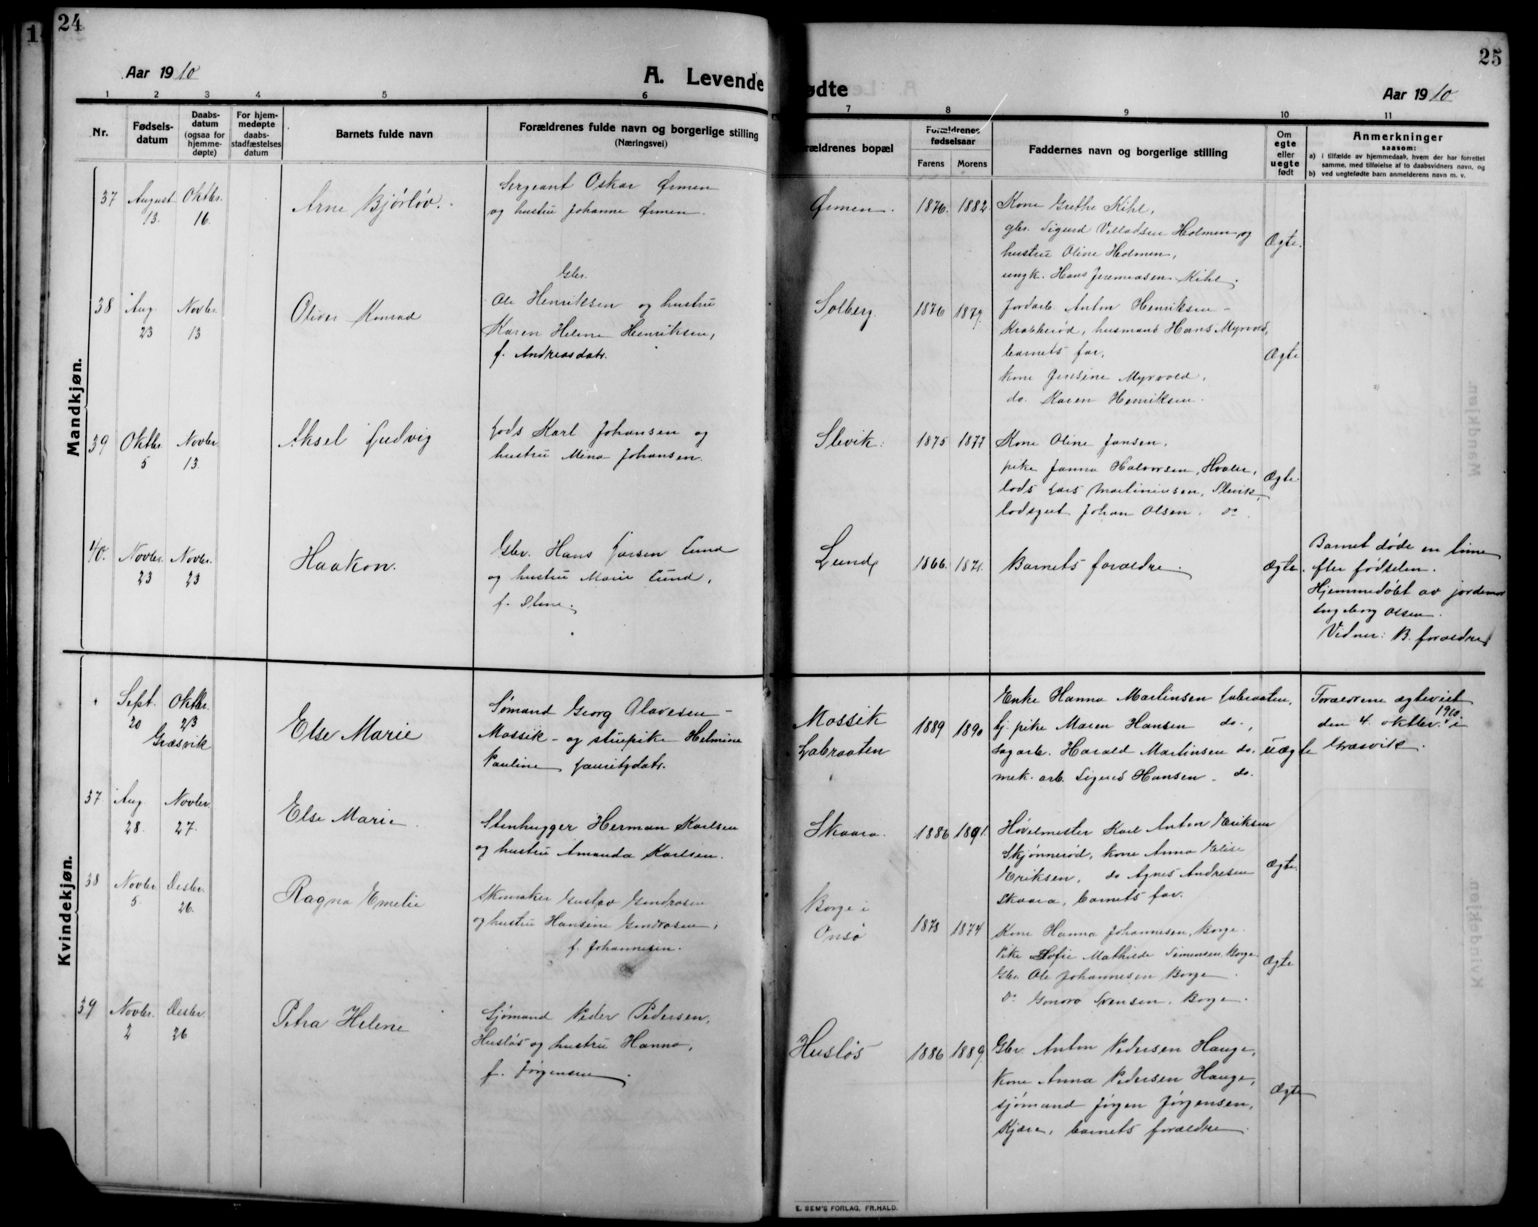 24
Aar 1910
A. Levende
1 2 3 4 5 6
Nr.
Fødsels-
datum
Daabs-
datum
(ogsaa for
hjemme-
døpte)
For hjem-
medøpte
daabs-
stadfæstelses
datum
Barnets fulde navn
Forældrenes fulde navn og borgerlige stilling
(Næringsvei)
Mandkjøn.
37 August Oktbr.
13. 16.
Arne Bjørløv.
Sergeant Oskar Ørmen
og hustru Johanne Ørmen.
38 Aug. Novbr.
23 13
Oliver Konrad
Gbr.
Ole Henriksen og hustru
Karen Helene Henriksen,
f. Andreasdatr.
39 Oktbr. Novbr.
5 13
Aksel Ludvig
Lods Karl Johansen og
hustru Mina Johansen.
40. Novbr. Novbr.
23 23
Haakon.
Gbr. Hans Larsen Lund
og hustru Marie Lund,
f.
Kvindekjøn.
Sept. Oktbr.
20 23
Græsvik
Else Marie
Sømand Georg Olavesen -
Mossik - og stuepike Helmine
Pauline Lauritzdatr.
37 Aug Novbr.
28. 27.
Else Marie
Stenhugger Herman Karlsen
og hustru Amanda Karlsen.
38 Novbr. Desbr.
5 26.
Ragna Emelie
Skomaker Gustav Gundrosen
og hustru Hansine Gundrosen,
f. Johannesen.
39 Novbr. Desbr.
2 26
Petra Helene
Sjømand Peder Pedersen,
Husløs og hustru Hanna,
f. Jørgensen.
25
ødte
Aar 1910
7 8 9 10 11
rældrenes bopæl
Forældrenes
fødselsaar
Farens Morens
Faddernes navn og borgerlige stilling
Om
egte
eller
uegte
født
Anmerkninger
saasom:
a) i tilfælde av hjemmedaab, hvem der har forrettet
samme, med tilføielse af to daabsvidners navn, og
b) ved uegtefødte barn anmelderens navn m. v.
Ørmen. 1876. 1882.
Kone Grethe Kihl,
gbr. Sigurd Villadsen Holmen og
hustru Oline Holmen,
ungk. Hans Jeremiasen Kihl.
Ægte.
Solberg. 1876 1879.
Jordarb. Anton Henriksen -
Krabberød, husmand Hans Myrvold,
barnets far,
kone Jensine Myrvold,
do. Karen Henriksen.
Ægte
Slevik. 1875 1877
Kone Oline Jansen,
pike Janna Halvorsen, Hvaler,
lods Lars Martiniusen, Slevik,
lodsgut Johan Olsen. do.
Ægte.
Lund, 1866. 1871.
Barnets forældre.
Ægte.
Barnet døde en time
efter fødselen.
Hjemmedøbt av jordemor
Ingeborg Olsen.
Vidner: B. forældre
Mossik
Labraaten
1889 1890
Enke Hanna Martinsen Labraaten,
tj. pike Maren Hansen do.,
Sagarb. Harald Martinsen do.
mek. arb. Sigurd Hansen. do.
uægte
Forældrene egteviet
den 4. oktbr. 1910 i
Græsvik.
Skaara. 1886 1891.
Høvelmester Karl Anton Eriksen
Skjønnerød, kone Anna Elise
Eriksen, do Agnes Andresen
Skaara, barnets far.
Ægte.
Borge i
Onsø
1873 1874
Kone Hanna Johannesen, Borge.
Pike Sofie Mathilde Simensen, Borge
Gbr. Ole Johannesen Borge.
Do Svensen, Borge.
Ægte
Husløs 1886 1889
Gbr. Anton Pedersen Hauge,
kone Anna Pedersen Hauge,
sjømand Jørgen Jørgensen,
Kjære, barnets forældre.
Ægte
E. SEM'S FORLAG, FR.HALD.